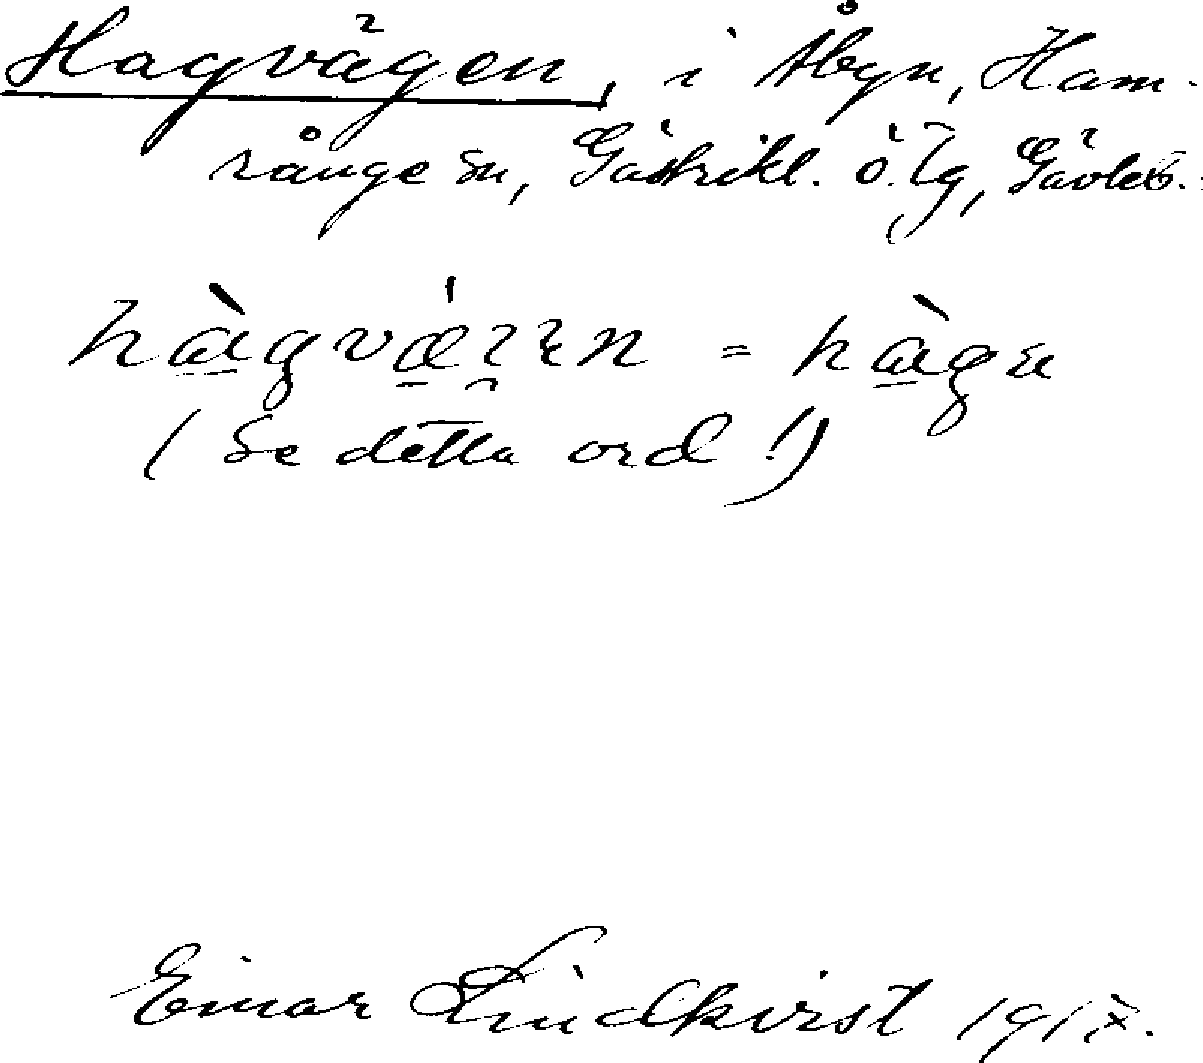 Hagvägen, i Åbyn, Ham-
rånge sn, Gästrikl. ö. tg, Gävleb.
(Se detta ord!)
Einar Lindkvist 1917.